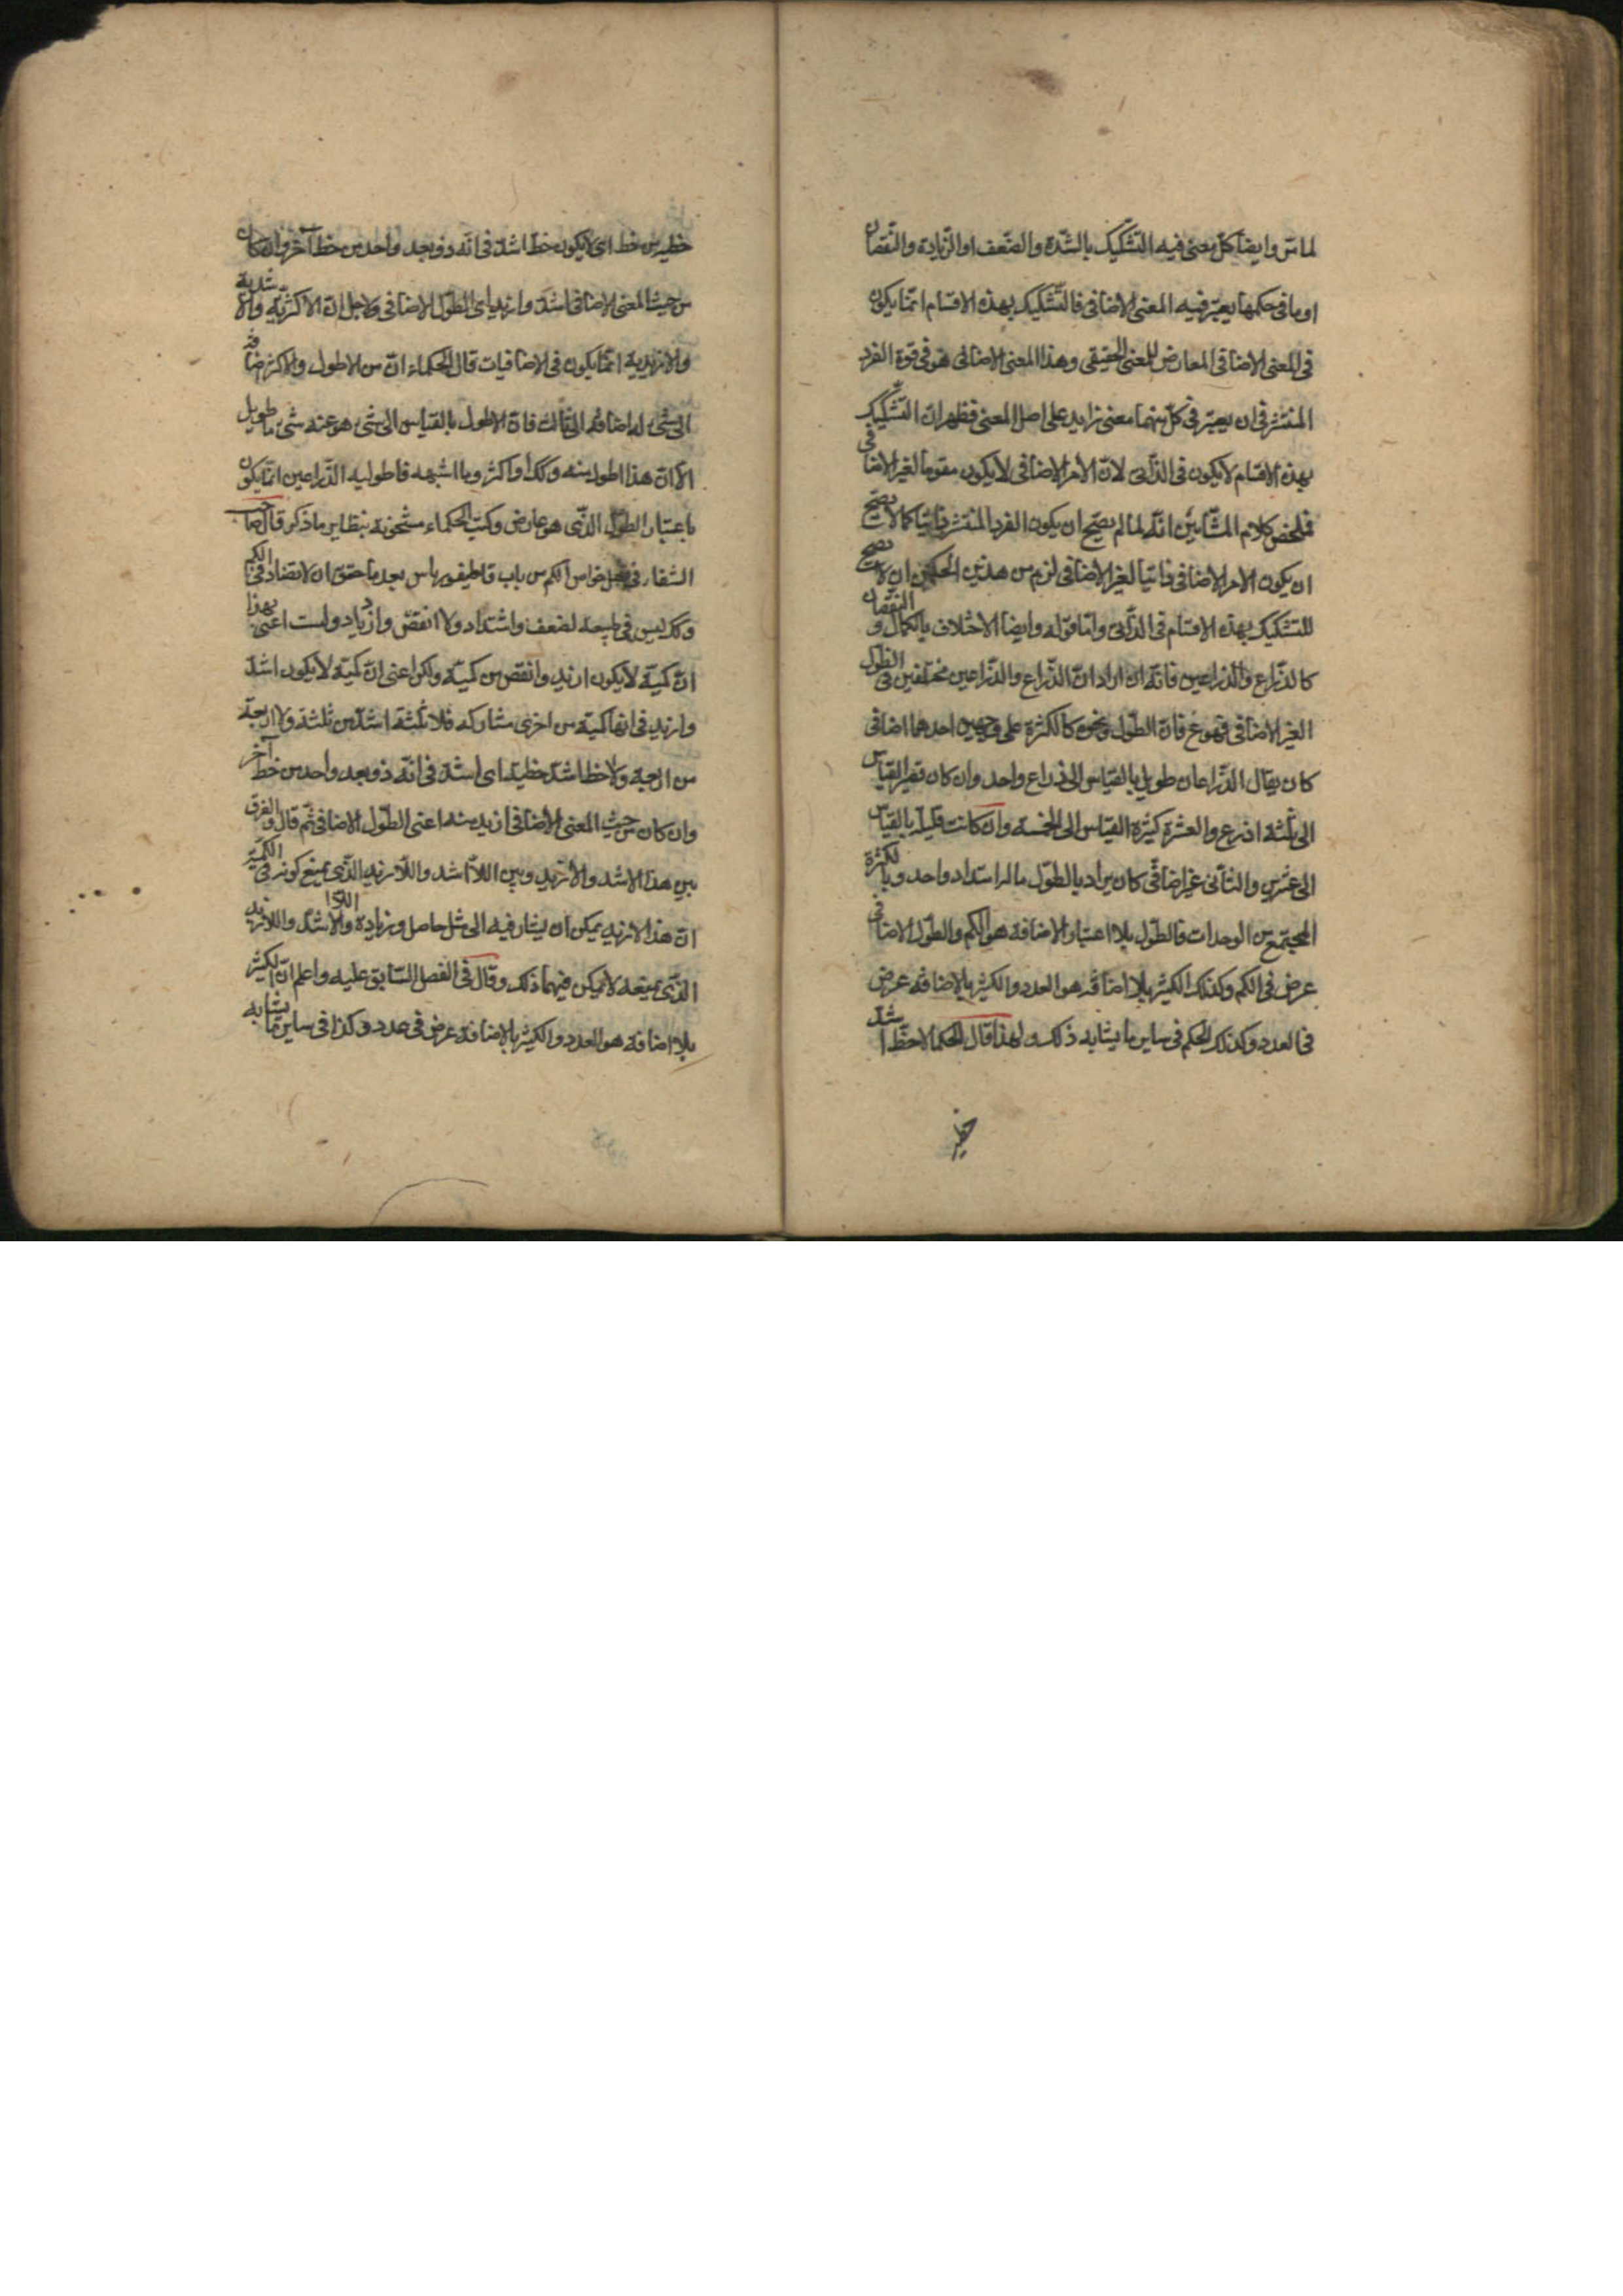 لما مرّ وايضا كلّ معنى فيه التشكيك بالشدّة والضّعف او الزّيادة والنّقصان
او ما فى حكمها يعتبر فيه المعنى الاضافى فالتّشكيك بهذه الاقسام انّما يكون
فى المعنى الاضافى العارض للمعنى الحقيقى وهذا المعنى الاضافى هو فى قوة الفرد
المنتشر فى ان يعتبر فى كلّ منهما معنى زايد على اصل المعنى فظهر انّ التشكيك
بهذه الاقسام لا يكون فى الذّاتى لانّ الأمر الاضافى لا يكون مقوما لغير الاضافى
فملخص كلام المشّائين انّه لما لم يصحّ ان يكون الفرد المنتشر ذاتيا كما لا يصحّ
ان يكون الامر الاضافى ذاتيا لغير الاضافى لزم من هذين الحكمين ان لا يصح
للتشكيك بهذه الاقسام فى الذّاتى وامّا قوله وايضا الاختلاف بالكمال والنّقصان
كالذّراع والذّراعين فانّه ان اراد انّ الذّراع والذّراعين مختلفين فى الطّول
الغير الاضافى فهو ع فانّ الطّول ونحوه كالكثرة على وجهين احدهما اضافى
كان يقال الذّراعان طويل بالقياس الى ذراع واحد وان كان قصير القياس
الى ثلثة اذرع والعشرة كثيرة القياس الى الخمسة وان كانت قليلة بالقياس
الى عشرين والثانى غير اضافى كان يراد بالطّول ماله امتداد واحد وبالكثرة
المجتمع من الوحدات فالطّول بلا اعتبار الاضافة هو الكم والطّول الاضافى
عرض فى الكم وكذلك الكثير بلا اضافة هو العدد والكثير بالاضافة عرض
فى العدد وكذلك الحكم فى ساير ما يشابه ذلك ولهذا قال الحكما لا خطّ اشدّ
خطّية
خطية من خط اى لا يكون خطّ اشدّ فى انّه ذو بعد واحد من خط آخر وان كان
من حيث المعنى الاضافى اشدّ وازيد اى الطّول الاضافى ولاجل انّ الاكثريّة والاشدية
والازيدية انّما يكون فى الاضافيات قال الحكماء انّ من الاطول والاكثر اضافة
الى شئ له اضافة الى ثالث فانّ الاطول بالقياس الى شئ هو عنه شئ ما طويل
الّا انّ هذا اطول منه وكك اواكثر وما اشبهه فاطولية الذّراعين انّما يكون
باعتبار الطّول الذّى هو عارض وكتب الحكماء مشحونة بنظاير ما ذكر قال صاحب
الشفا فى فصل خواص الكم من باب قاطيغورياس بعد ما حقق ان لا تضاد فى الكم
وكك ليس فى طبيعة لضعف واشتداد ولا انتقص وازدياد ولست اعنى بهذا
انّ كميّة لا يكون ازيد وانقص من كميّة ولكن اعنى انّ كميّة لا يكون اشدّ
وازيد فى انها كميّة من اخرى مشاركه فلا ثلثة اشدّ من ثلثة ولا اربعة
من اربعة ولا خطا اشدّ خطية اى اشدّ فى انّه ذو بعد واحد من خط آخر
وان كان من حيث المعنى الاضافى ازيد منه اعنى الطّول الاضافى ثمّ قال والفرق
بين هذا الاشد والازيد وبين اللّا اشد واللّا ازيد الذّى يمنع كونه فى الكميّة
انّ هذا الازيد يمكن ان يشار فيه الى مثل حاصل وزيادة واللّا اشدّ واللّا ازيد
الذّى يمنعه لا يمكن فيهما ذلك وقال فى الفصل السّابق عليه واعلم انّ الكثير
بلا اضافة هو العدد والكثير بالاضافة عرض فى عدد وكذا فى ساير ما يشابه